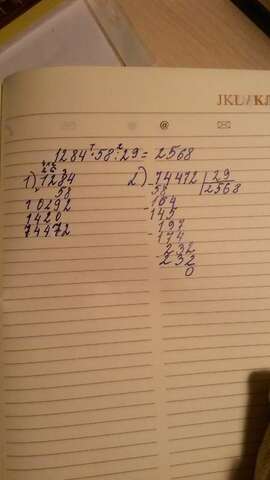 JKL/КЛ
1284·58:29=2568
1) 1284
58
10292
1420
74472
2) 74472 | 29
58 2568
164
145
197
174
232
232
0